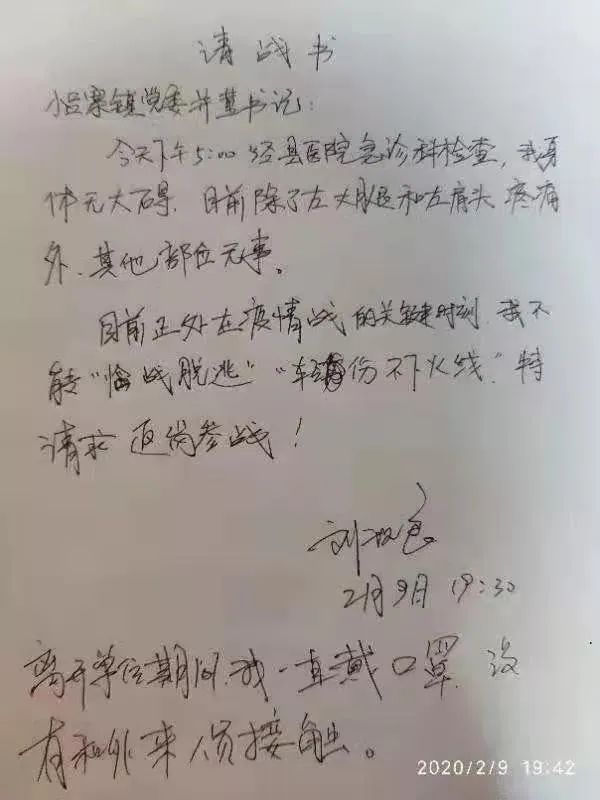 请战书
小吕寨镇党委并慧书记：
今天下午5:00经县医院急诊科检查，我身
体无大碍．目前除了左大腿和左肩头疼痛
外、其他部位无事。
目前正处在疫情战的关键时刻．我不
能“临战脱逃”“轻伤不下火线”特
请求返岗参战！
刘
2月9日 19:30
离开单位期间．我一直戴口罩．没
有和外来人员接触。
2020/2/9 19:42